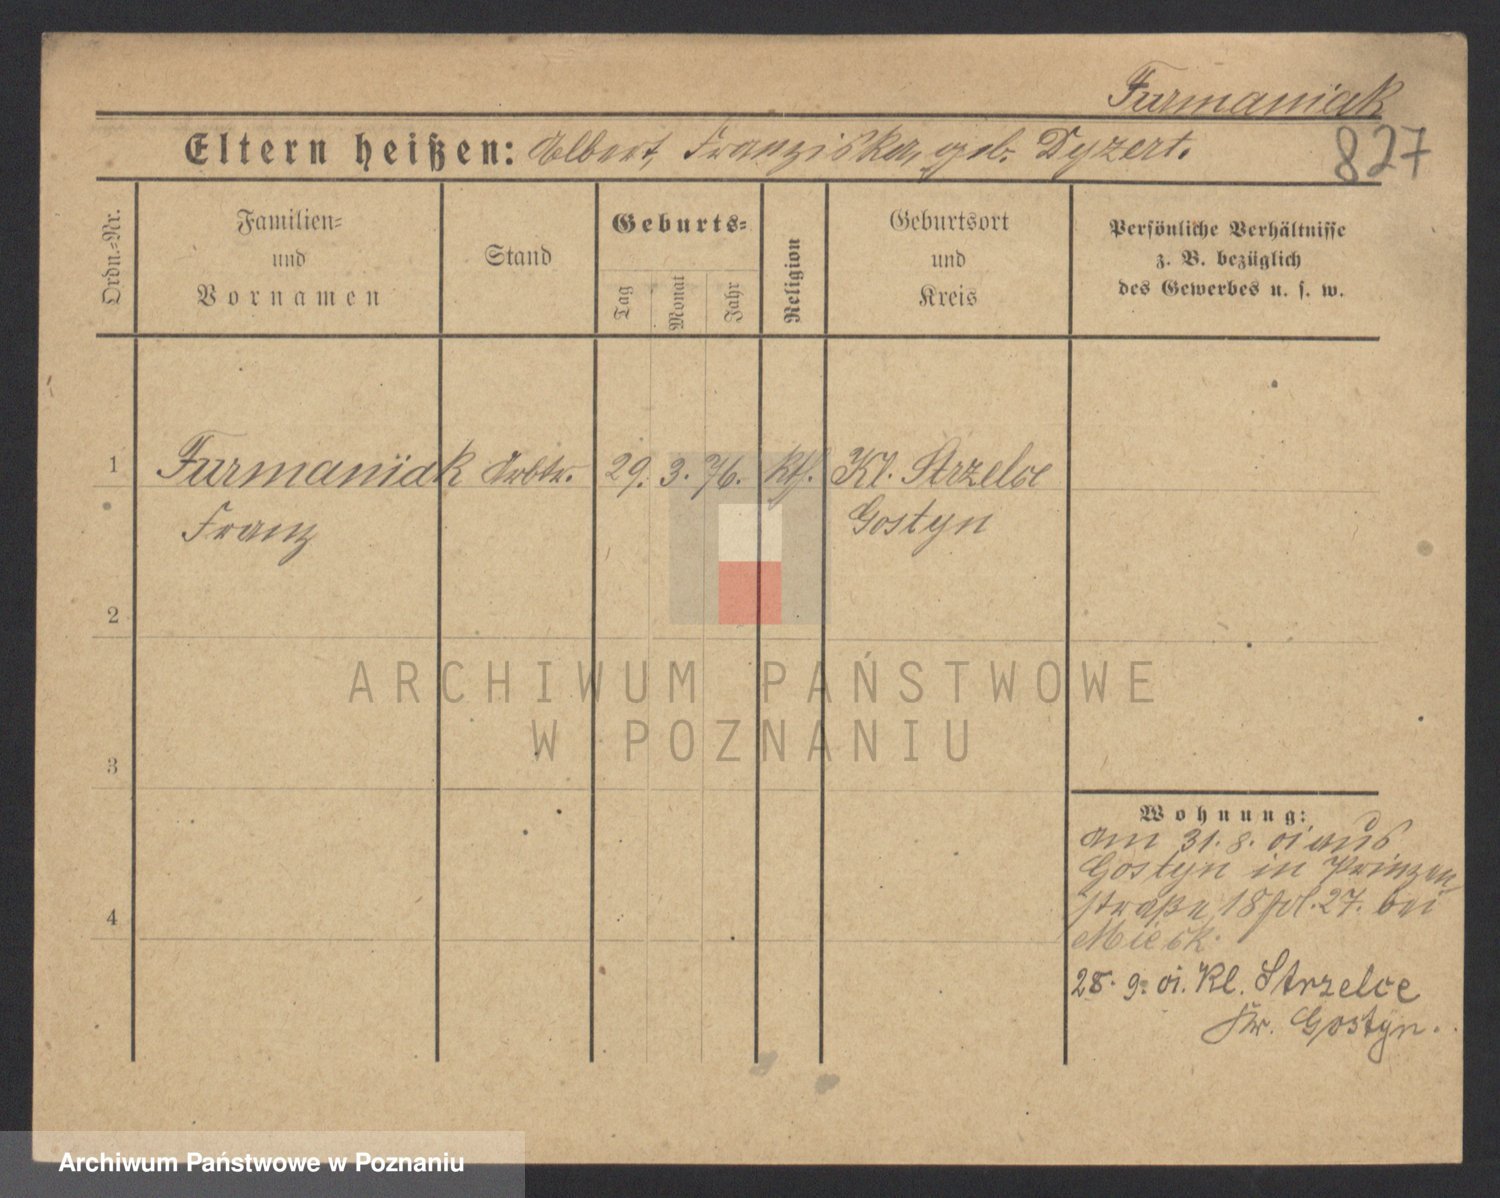 Furmaniak
827
Eltern heißen: Albert, Franziska, geb. Dyzert.
Ordn.-Nr.
Familien-
und
Vornamen
Stand
Geburts-
Tag
Monat
Jahr
Religion
Geburtsort
und
Kreis
Persönliche Verhältnisse
z. B. bezüglich
des Gewerbes u. s. w.
1
Furmaniak Arbtr. 29. 3. 76. ktl. Kl. Strzelce
Franz
Gostyn
2
3
4
Wohnung:
am 31. 8. 01 aus
Gostyn in Prinzen
straße 18 27. bei
28. 9. 01. Kl. Strzelce
Kr. Gostyn.
ARCHIWUM PAŃSTWOWE
W POZNANIU
Archiwum Państwowe w Poznaniu